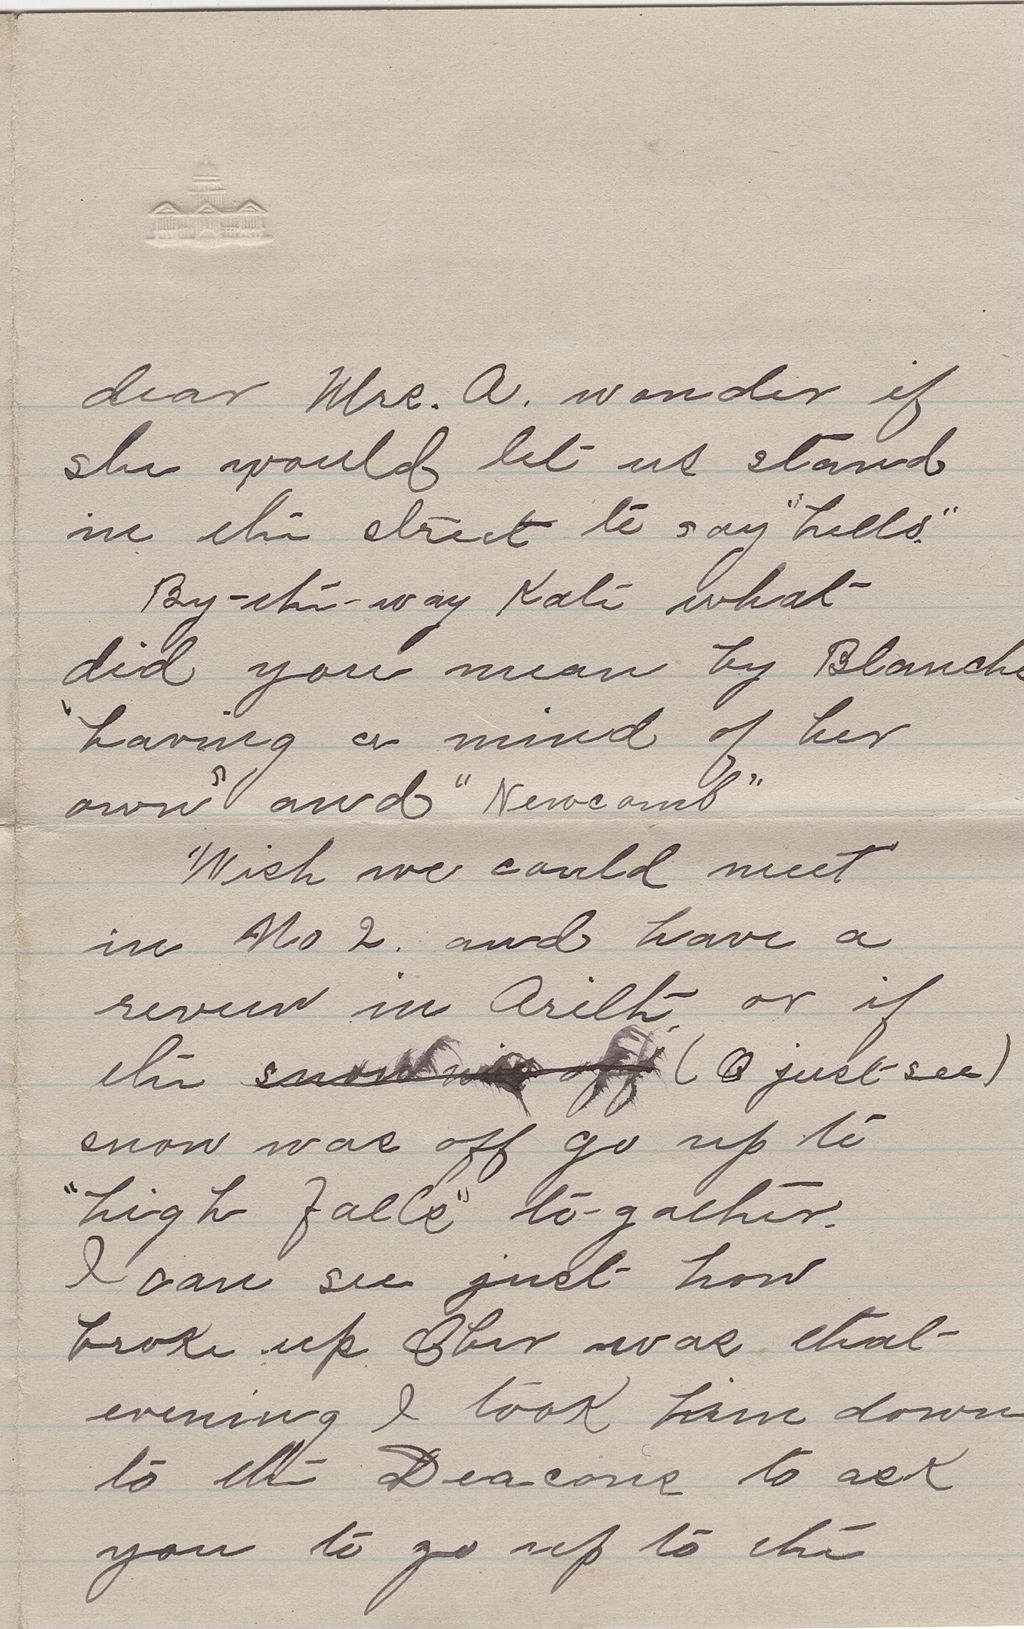 dear Mrs. A. wonder if
she would let us stand
in the street to say "hello."
By-the-way Kate what
did you mean by Blanche
"having a mind of her
own" and "Newcomb"
Wish we could meet
in No 2. and have a
in Arith, or if
the snow was off (O just see)
snow was off go up to
"high Falls" to-gather.
I can see just how
broke up was that
evening I took him down
to the Deacons to ask
you to go up to the